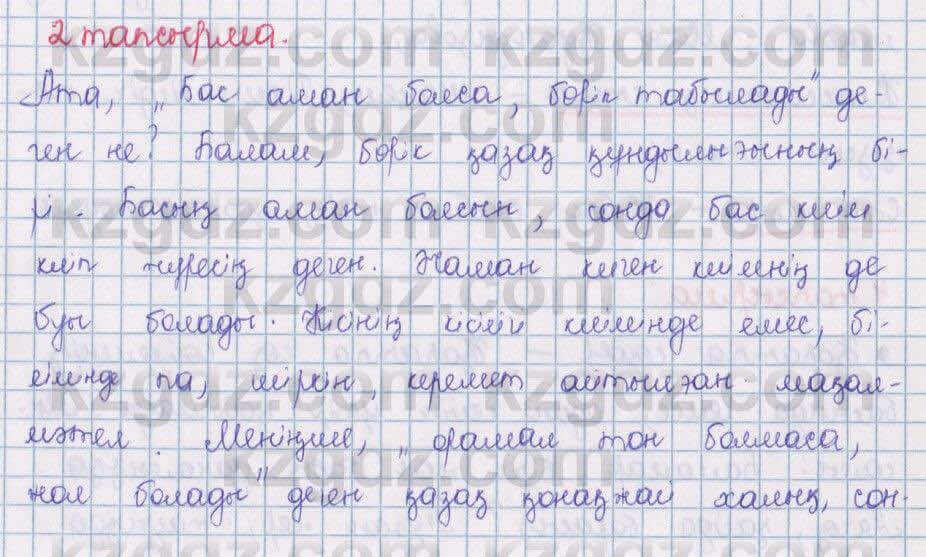 2 тапсырма.
Ата, „Бас аман болса, бөрік табылады" де-
ген не? Балам, бөрік қазақ құндылығының бі-
рі. Басың аман болсын, сонда бас киім
киіп жүресің деген. Жаман киген киімнің де
буы болады. Кісінің кісілігі киімінде емес, бі-
лімінде па, шіркін, керемет айтылған мақал-
мәтел. Меніңше, „орамал тон болмаса,
жол болады" деген қазақ қонақжай халық, сон-